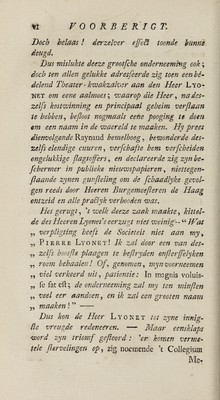 VI VOORBERIGT.
Doch helaas! derzelver effect toonde hunne
deugd.
Dus mislukte deeze grootsche onderneeming ook;
doch ten allen gelukke adresseerde zig toen een be-
delend Theater-kwakzalver aan den Heer LYO-
NET om eene aalmoes; waarop die Heer, na des-
zelfs kostwinning en principaal geheim verstaan
te hebben, besloot nogmaals eene pooging te doen
om een naam in de waereld te maaken. Hy prees
dienvolgende Raynaud hemelhoog, bewonderde des-
zelfs elendige cuuren, verschafte hem verscheiden
ongelukkige slagtoffers, en declareerde zig zyn be-
schermer in publieke nieuwspapieren, niettegen-
staande zynen gunsteling om de schaadlyke gevol-
gen reeds door Heeren Burgemeesteren de Haag
ontzeid en alle practyk verboden was.
Het gerugt, 't welk deeze zaak maakte, kittel-
de des Heeren Lyonet's eerzugt niet weinig. — „ Wat
„ verpligting heeft de Societeit niet aan my,
„ PIERRE LYONET! Ik zal door een van des-
„ zelfs booste plaagen te bestryden onsterffelyken
„ roem behaalen! Of, genomen, myn voorneemen
„ viel verkeerd uit, patientie: In magnis voluis-
„ se sat est; de onderneeming zal my ten minsten
„ veel eer aandoen, en ik zal een grooten naam
„ maaken!" —
Dus hon de Heer LYONET tot zyne innig-
ste vreugde redeneeren. — Maar eensklaps
word zyn triomf gestoord: 'er komen verme-
tele stervelingen op, zig noemende 't Collegium
Me-